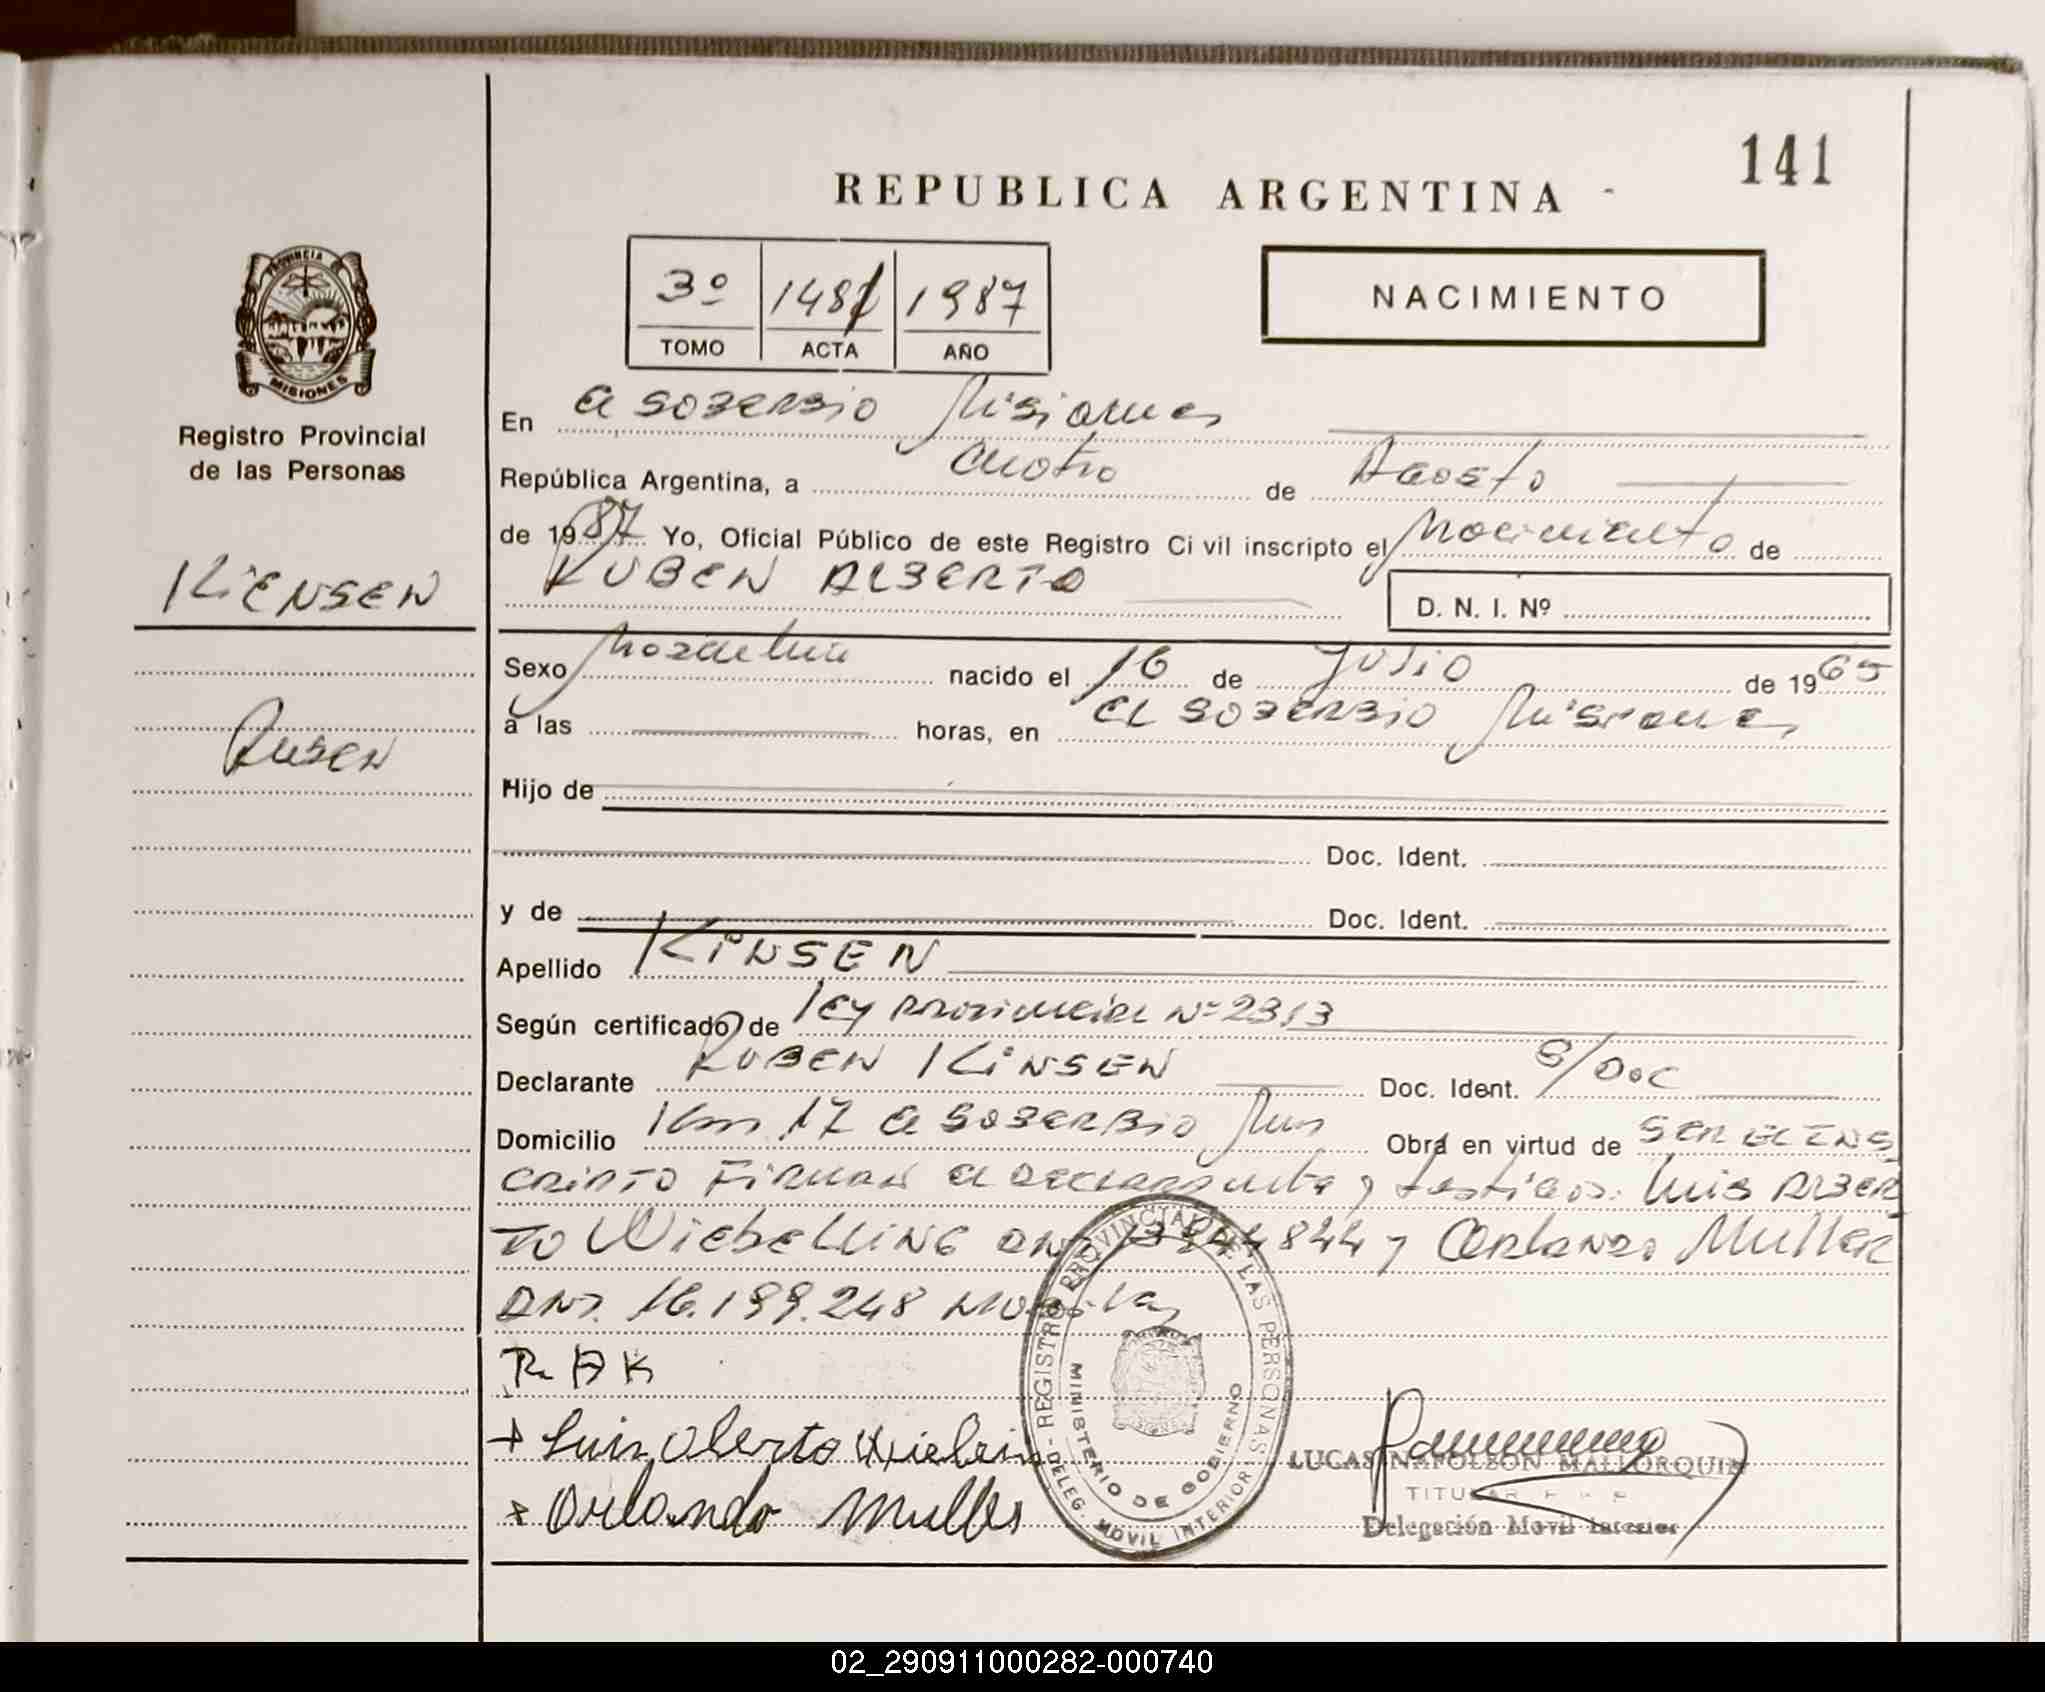 141
REPUBLICA ARGENTINA
3º 1481 1987
TOMO ACTA AÑO
NACIMIENTO
PROVINCIA DE MISIONES
Registro Provincial
de las Personas
KiENSEN
Ruben
En El SOBERBIO Misiones
República Argentina, a cuatro de Agosto
de 1987 Yo, Oficial Público de este Registro Civil inscripto el Nacimiento de
RUBEN ALBERTO D. N. I. Nº
Sexo Masculino nacido el 16 de Julio de 1965
a las horas, en EL SOBERBIO Misiones
Hijo de
Doc. Ident.
y de Doc. Ident.
Apellido KiNSEN
Según certificado de ley Provincial Nº 2313
Declarante RUBEN KiNSEN Doc. Ident. S/Doc
Domicilio Km 17 El SOBERBIO Mns Obra en virtud de SER EL INS
CRIPTO Firman el Declarante y testigos: Luis ALBER
TO WiebelliNG DNI 44844 y Orlando Muller
DNI. 16.199.248
R A K
+ Luis Alberto Wiebelin
x Orlando Muller
REGISTRO PROVINCIAL DE LAS PERSONAS
MINISTERIO DE GOBIERNO
DELEG. MOVIL INTERIOR
LUCAS NAPOLEON MALLORQUIN
TITULAR
Delegación Movil Interior
02_290911000282-000740